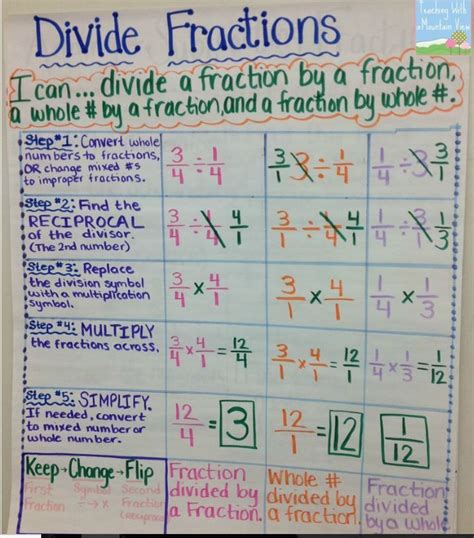 Teaching With
a Mountain View
Divide Fractions
I can... divide a fraction by a fraction,
a whole # by a fraction, and a fraction by whole #.
Step #1: Convert whole
numbers to fractions,
OR change mixed #s
to improper fractions.
3/4 ÷ 1/4
3/1 3 ÷ 1/4
1/4 ÷ 3 3/1
Step #2: Find the
RECIPROCAL
of the divisor.
(The 2nd number).
3/4 ÷ 1/4 4/1
3/1 ÷ 1/4 4/1
1/4 ÷ 3/1 1/3
Step #3: Replace
the division symbol
with a multiplication
symbol.
3/4 x 4/1
3/1 x 4/1
1/4 x 1/3
Step #4: MULTIPLY
the fractions across.
3/4 x 4/1 = 12/4
3/1 x 4/1 = 12/1
1/4 x 1/3 = 1/12
Step #5: SIMPLIFY.
If needed, convert
to mixed number or
whole number.
12/4 = 3
12/1 = 12
1/12
Keep→Change→Flip
First Symbol Second
Fraction ÷→x Fraction
(reciprocal)
Fraction
divided by
a Fraction.
Whole #
divided by
a fraction.
Fraction
divided
by a whole